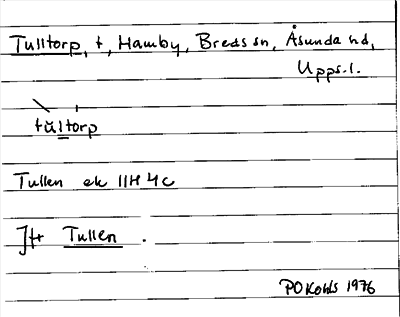 Tulltorp, t, Hamby, Breds sn, Åsunda hd,
Upps. l.
tŭltorp
Tullen ek 11H 4c
Jfr Tullen.
PO Kohls 1976